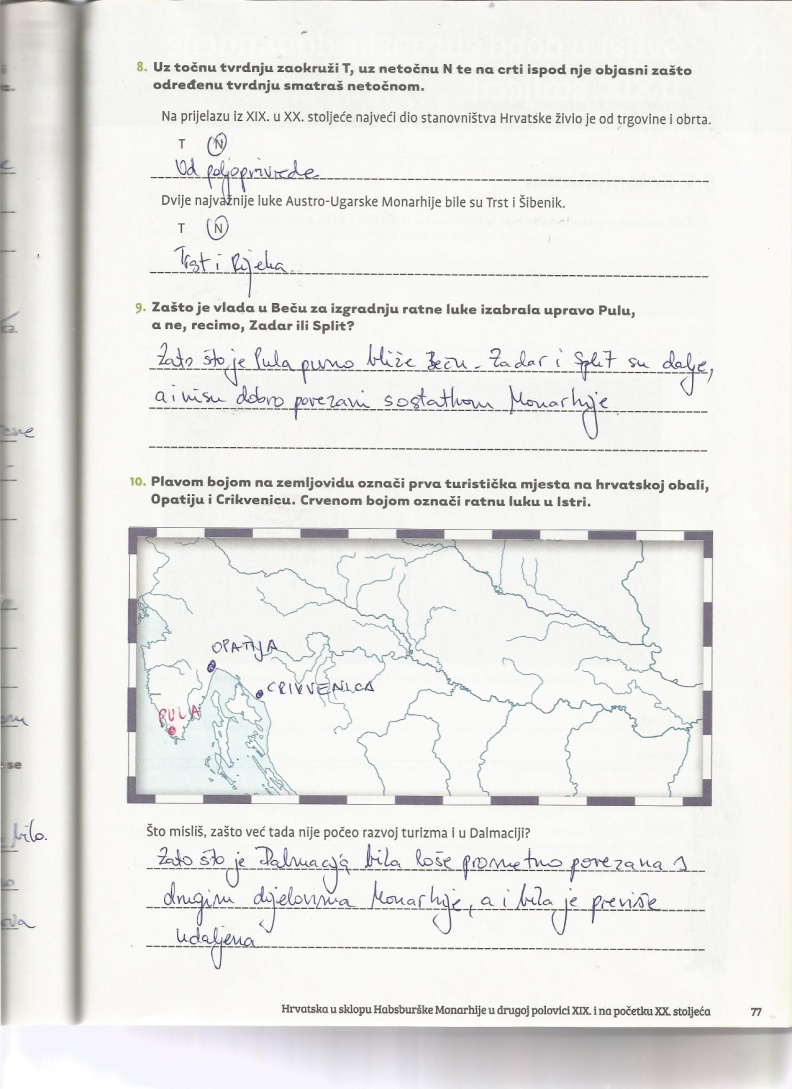 8. Uz točnu tvrdnju zaokruži T, uz netočnu N te na crti ispod nje objasni zašto
određenu tvrdnju smatraš netočnom.
Na prijelazu iz XIX. u XX. stoljeće najveći dio stanovništva Hrvatske živio je od trgovine i obrta.
T N
Od poljoprivrede
Dvije najvažnije luke Austro-Ugarske Monarhije bile su Trst i Šibenik.
T N
Trst i Rijeka.
9. Zašto je vlada u Beču za izgradnju ratne luke izabrala upravo Pulu,
a ne, recimo, Zadar ili Split?
Zato što je Pula puno bliže Beču. Zadar i Split su dalje,
a i nisu dobro povezani s ostatkom Monarhije
10. Plavom bojom na zemljovidu označi prva turistička mjesta na hrvatskoj obali,
Opatiju i Crikvenicu. Crvenom bojom označi ratnu luku u Istri.
OPATIJA
CRIKVENICA
PULA
Što misliš, zašto već tada nije počeo razvoj turizma i u Dalmaciji?
Zato što je Dalmacija bila loše prometno povezana s
drugim dijelovima Monarhije, a i bila je previše
udaljena
se
bilo.
Hrvatska u sklopu Habsburške Monarhije u drugoj polovici XIX. i na početku XX. stoljeća 77